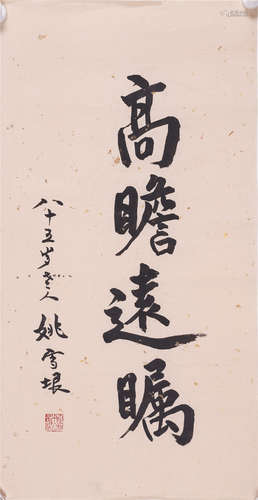 高瞻遠瞩
八十五岁老人
姚雪垠